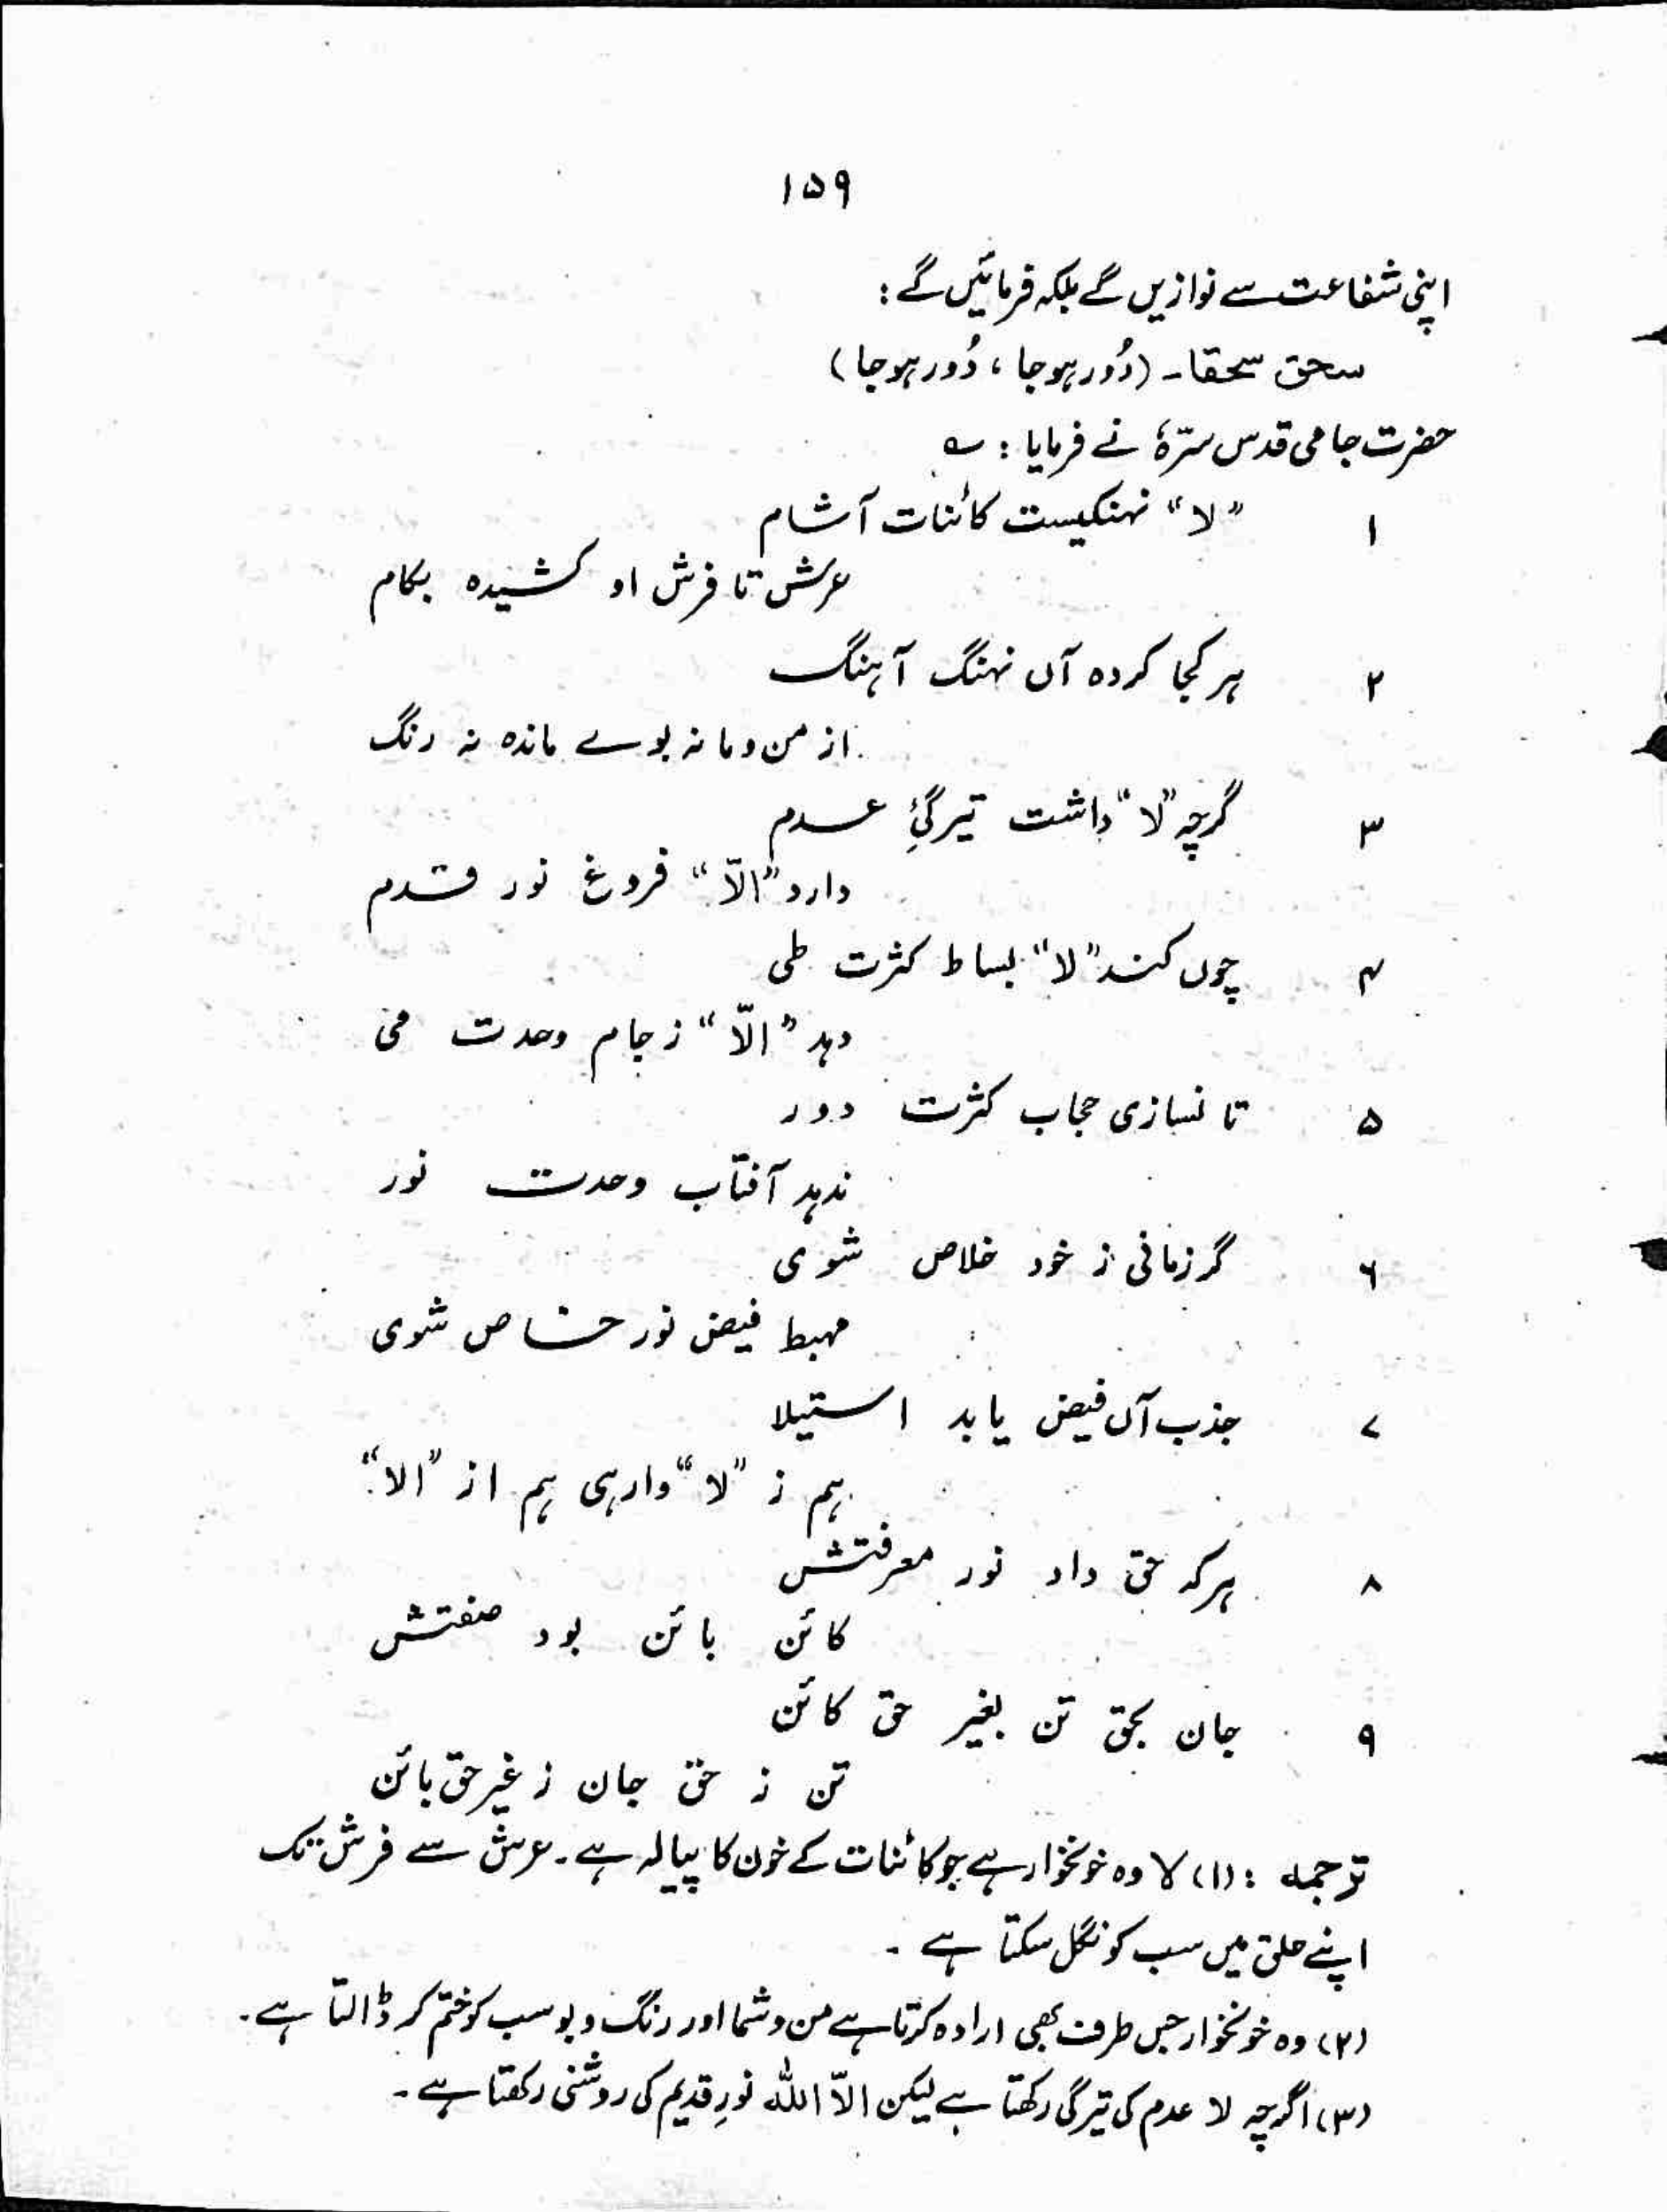 ۱۵۹
اپنی شفاعت سے نوازیں گے بلکہ فرمائیں گے :
سحق سحقا۔ (دُور ہو جا ، دُور ہو جا)
حضرت جامی قدس سرّہٗ نے فرمایا : ؎
۱ ”لا“ نہنگیست کائنات آشام
عرش تا فرش او کشیدہ بکام
۲ ہر کجا کردہ آں نہنگ آہنگ
از من و ما نہ بوے ماندہ نہ رنگ
۳ گرچہ ”لا“ داشت تیرگیٔ عدم
دارد ”الّا“ فروغ نور قدم
۴ چوں کند ”لا“ بساط کثرت طی
دہد ”الّا“ ز جام وحدت می
۵ تا نسازی حجاب کثرت دور
ندہد آفتاب وحدت نور
۶ گر زمانی ز خود خلاص شوی
مہبط فیض نور خاص شوی
۷ جذب آں فیض یابد استیلا
ہم ز ”لا“ وارہی ہم از ”الا“
۸ ہر کہ حق داد نور معرفتش
کائن بائن بود صفتش
۹ جان بحق تن بغیر حق کائن
تن ز حق جان ز غیر حق بائن
ترجمہ : (۱) لا وہ خونخوار ہے جو کائنات کے خون کا پیالہ ہے۔ عرش سے فرش تک
اپنے حلق میں سب کو نگل سکتا ہے ۔
(۲) وہ خونخوار جس طرف بھی ارادہ کرتا ہے من و شما اور رنگ و بو سب کو ختم کر ڈالتا ہے۔
(۳) اگرچہ لا عدم کی تیرگی رکھتا ہے لیکن الّا اللہ نورِ قدیم کی روشنی رکھتا ہے ۔